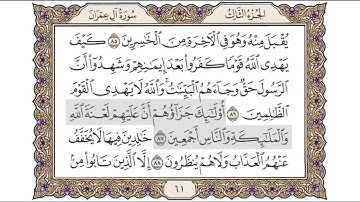 الجزء الثالث
سورة آل عمران
يُقْبَلَ مِنْهُ وَهُوَ فِي الْآخِرَةِ مِنَ الْخَاسِرِينَ ٨٥ كَيْفَ
يَهْدِي اللَّهُ قَوْمًا كَفَرُوا بَعْدَ إِيمَانِهِمْ وَشَهِدُوا أَنَّ
الرَّسُولَ حَقٌّ وَجَاءَهُمُ الْبَيِّنَاتُ ۚ وَاللَّهُ لَا يَهْدِي الْقَوْمَ
الظَّالِمِينَ ٨٦ أُولَٰئِكَ جَزَاؤُهُمْ أَنَّ عَلَيْهِمْ لَعْنَةَ اللَّهِ
وَالْمَلَائِكَةِ وَالنَّاسِ أَجْمَعِينَ ٨٧ خَالِدِينَ فِيهَا لَا يُخَفَّفُ
عَنْهُمُ الْعَذَابُ وَلَا هُمْ يُنْظَرُونَ ٨٨ إِلَّا الَّذِينَ تَابُوا مِنْ
٦١